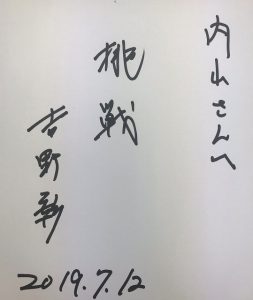 内山さんへ
挑戦
吉野彰
2019.7.12